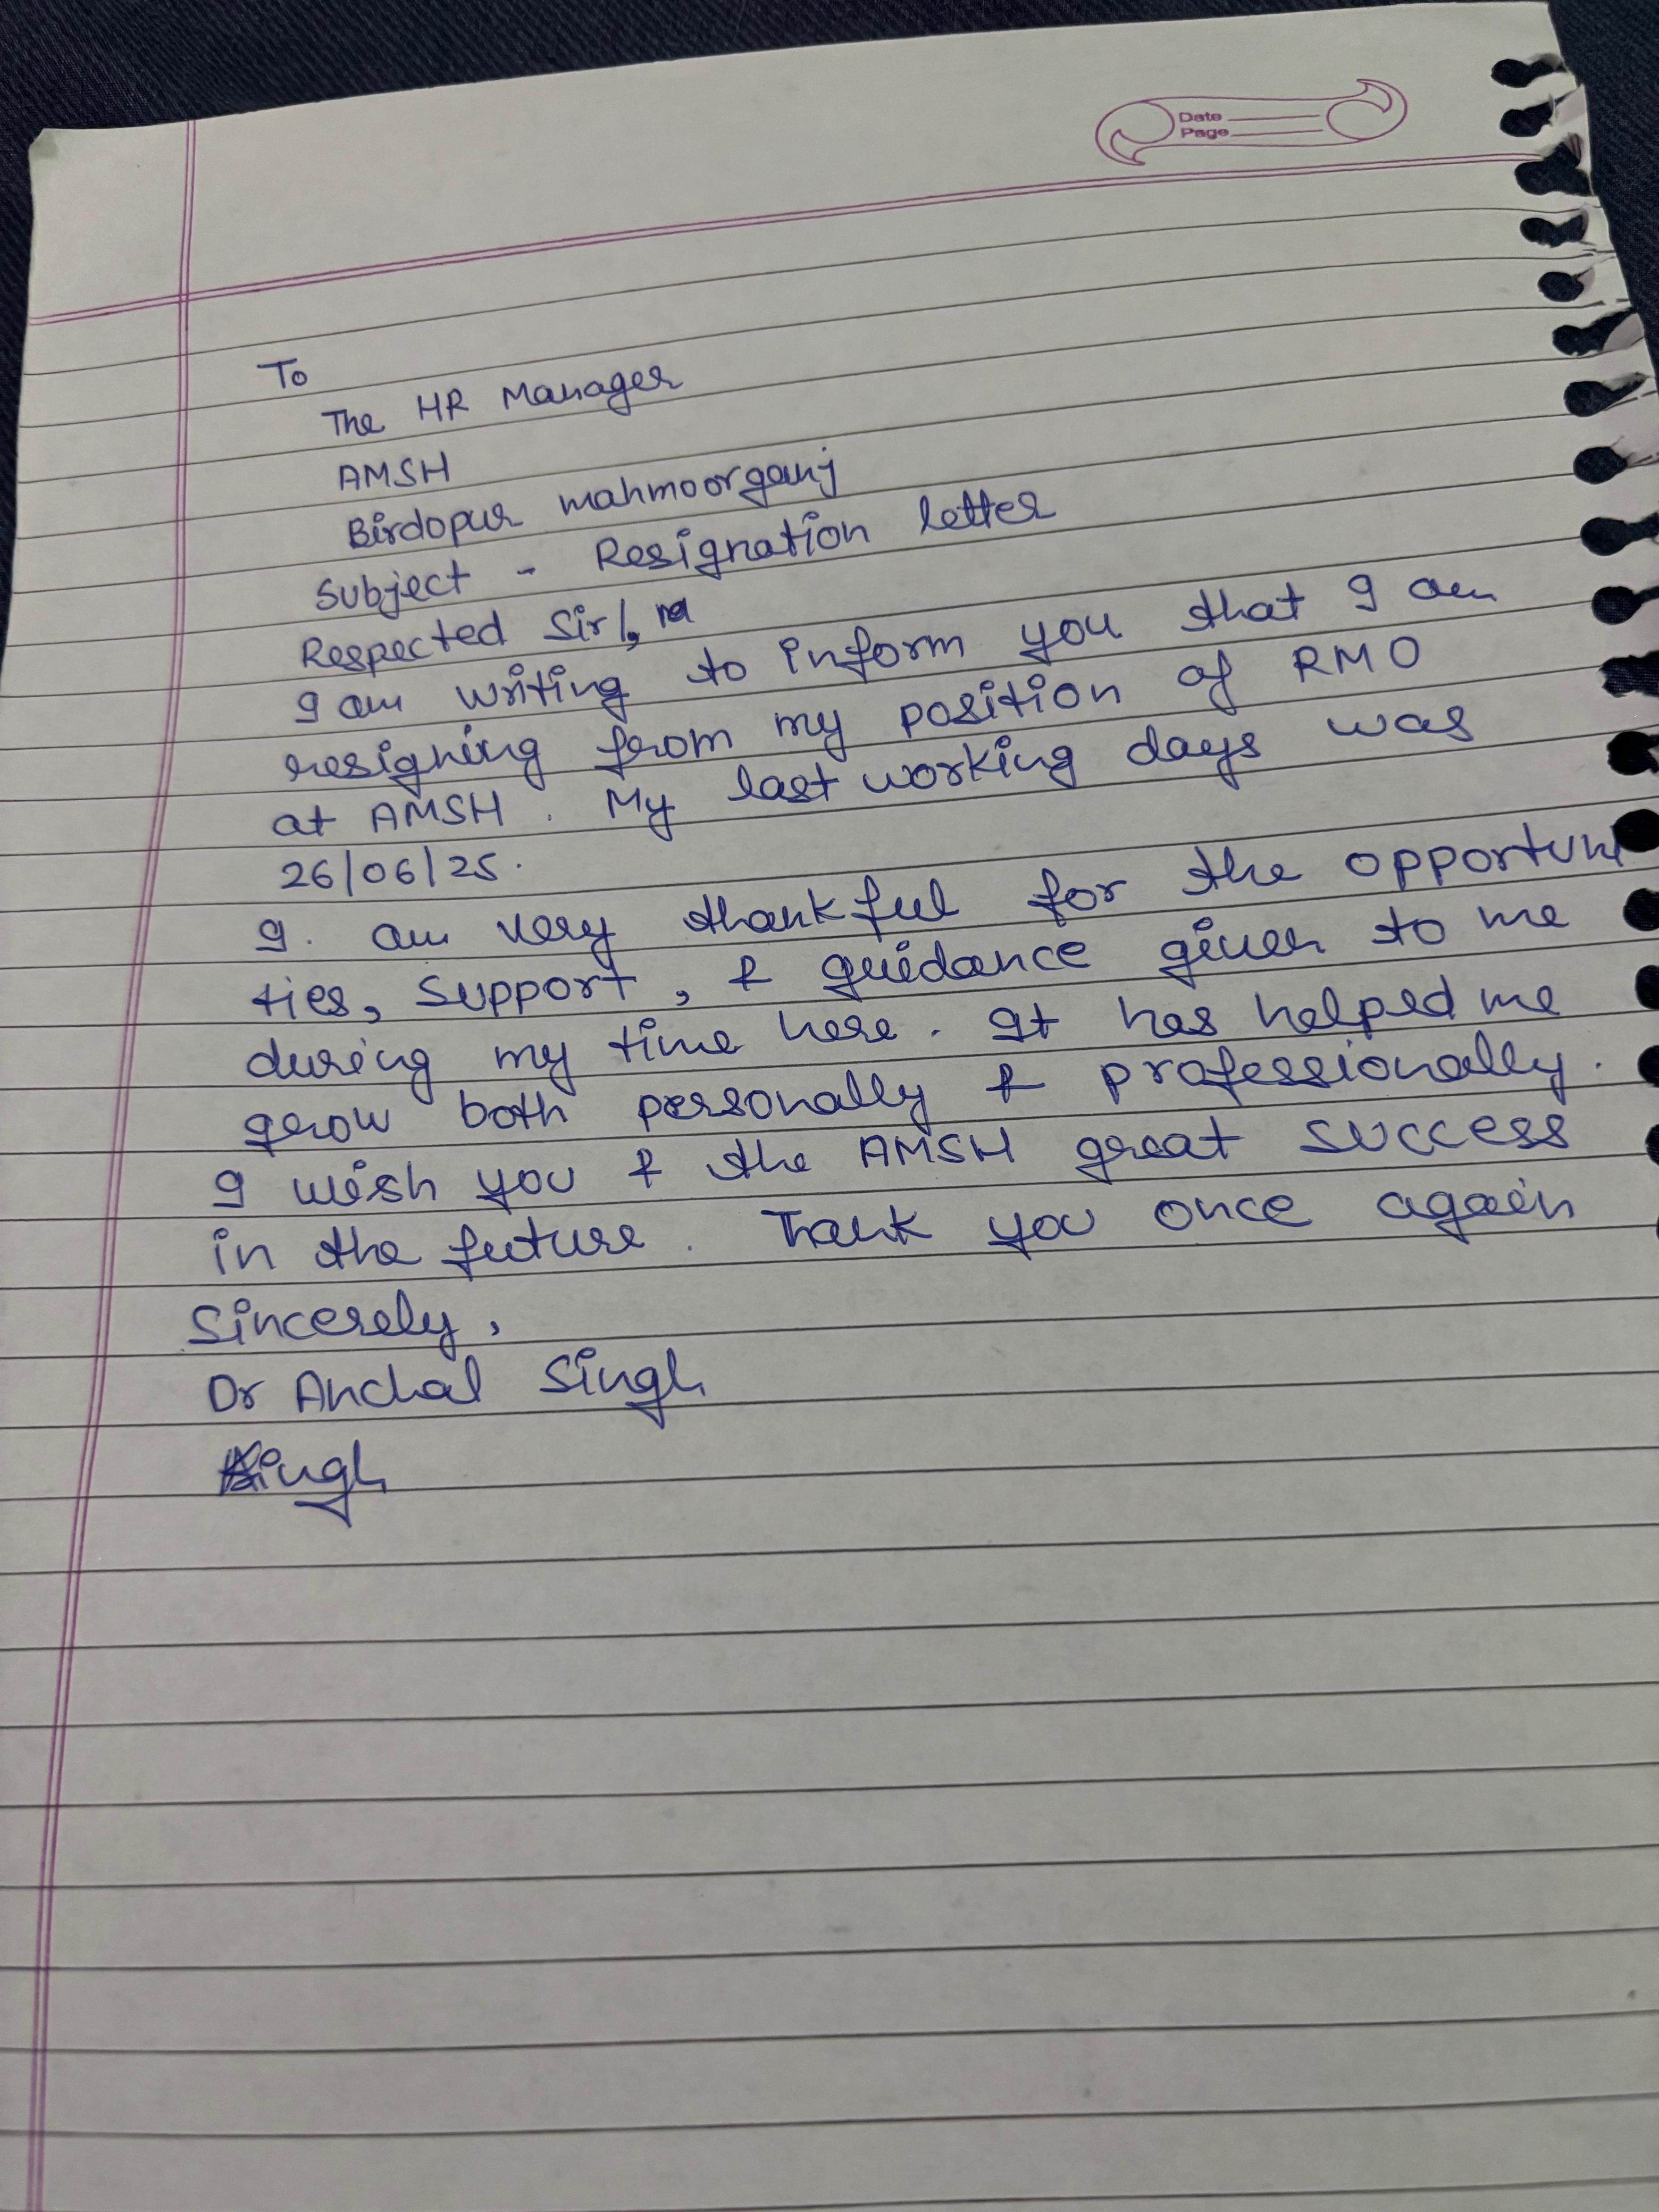 Date
Page
To
The HR Manager
AMSH
Birdopur mahmoorganj
Subject - Resignation letter
Respected Sir/,
I am writing to inform you that I am
resigning from my position of RMO
at AMSH. My last working days was
26/06/25.
I. am very thankful for the opportuni
ties, support, & guidance given to me
during my time here. It has helped me
grow both personally & professionally.
I wish you & the AMSH great success
in the future. Thank you once again
Sincerely,
Dr Anchal Singh
Singh